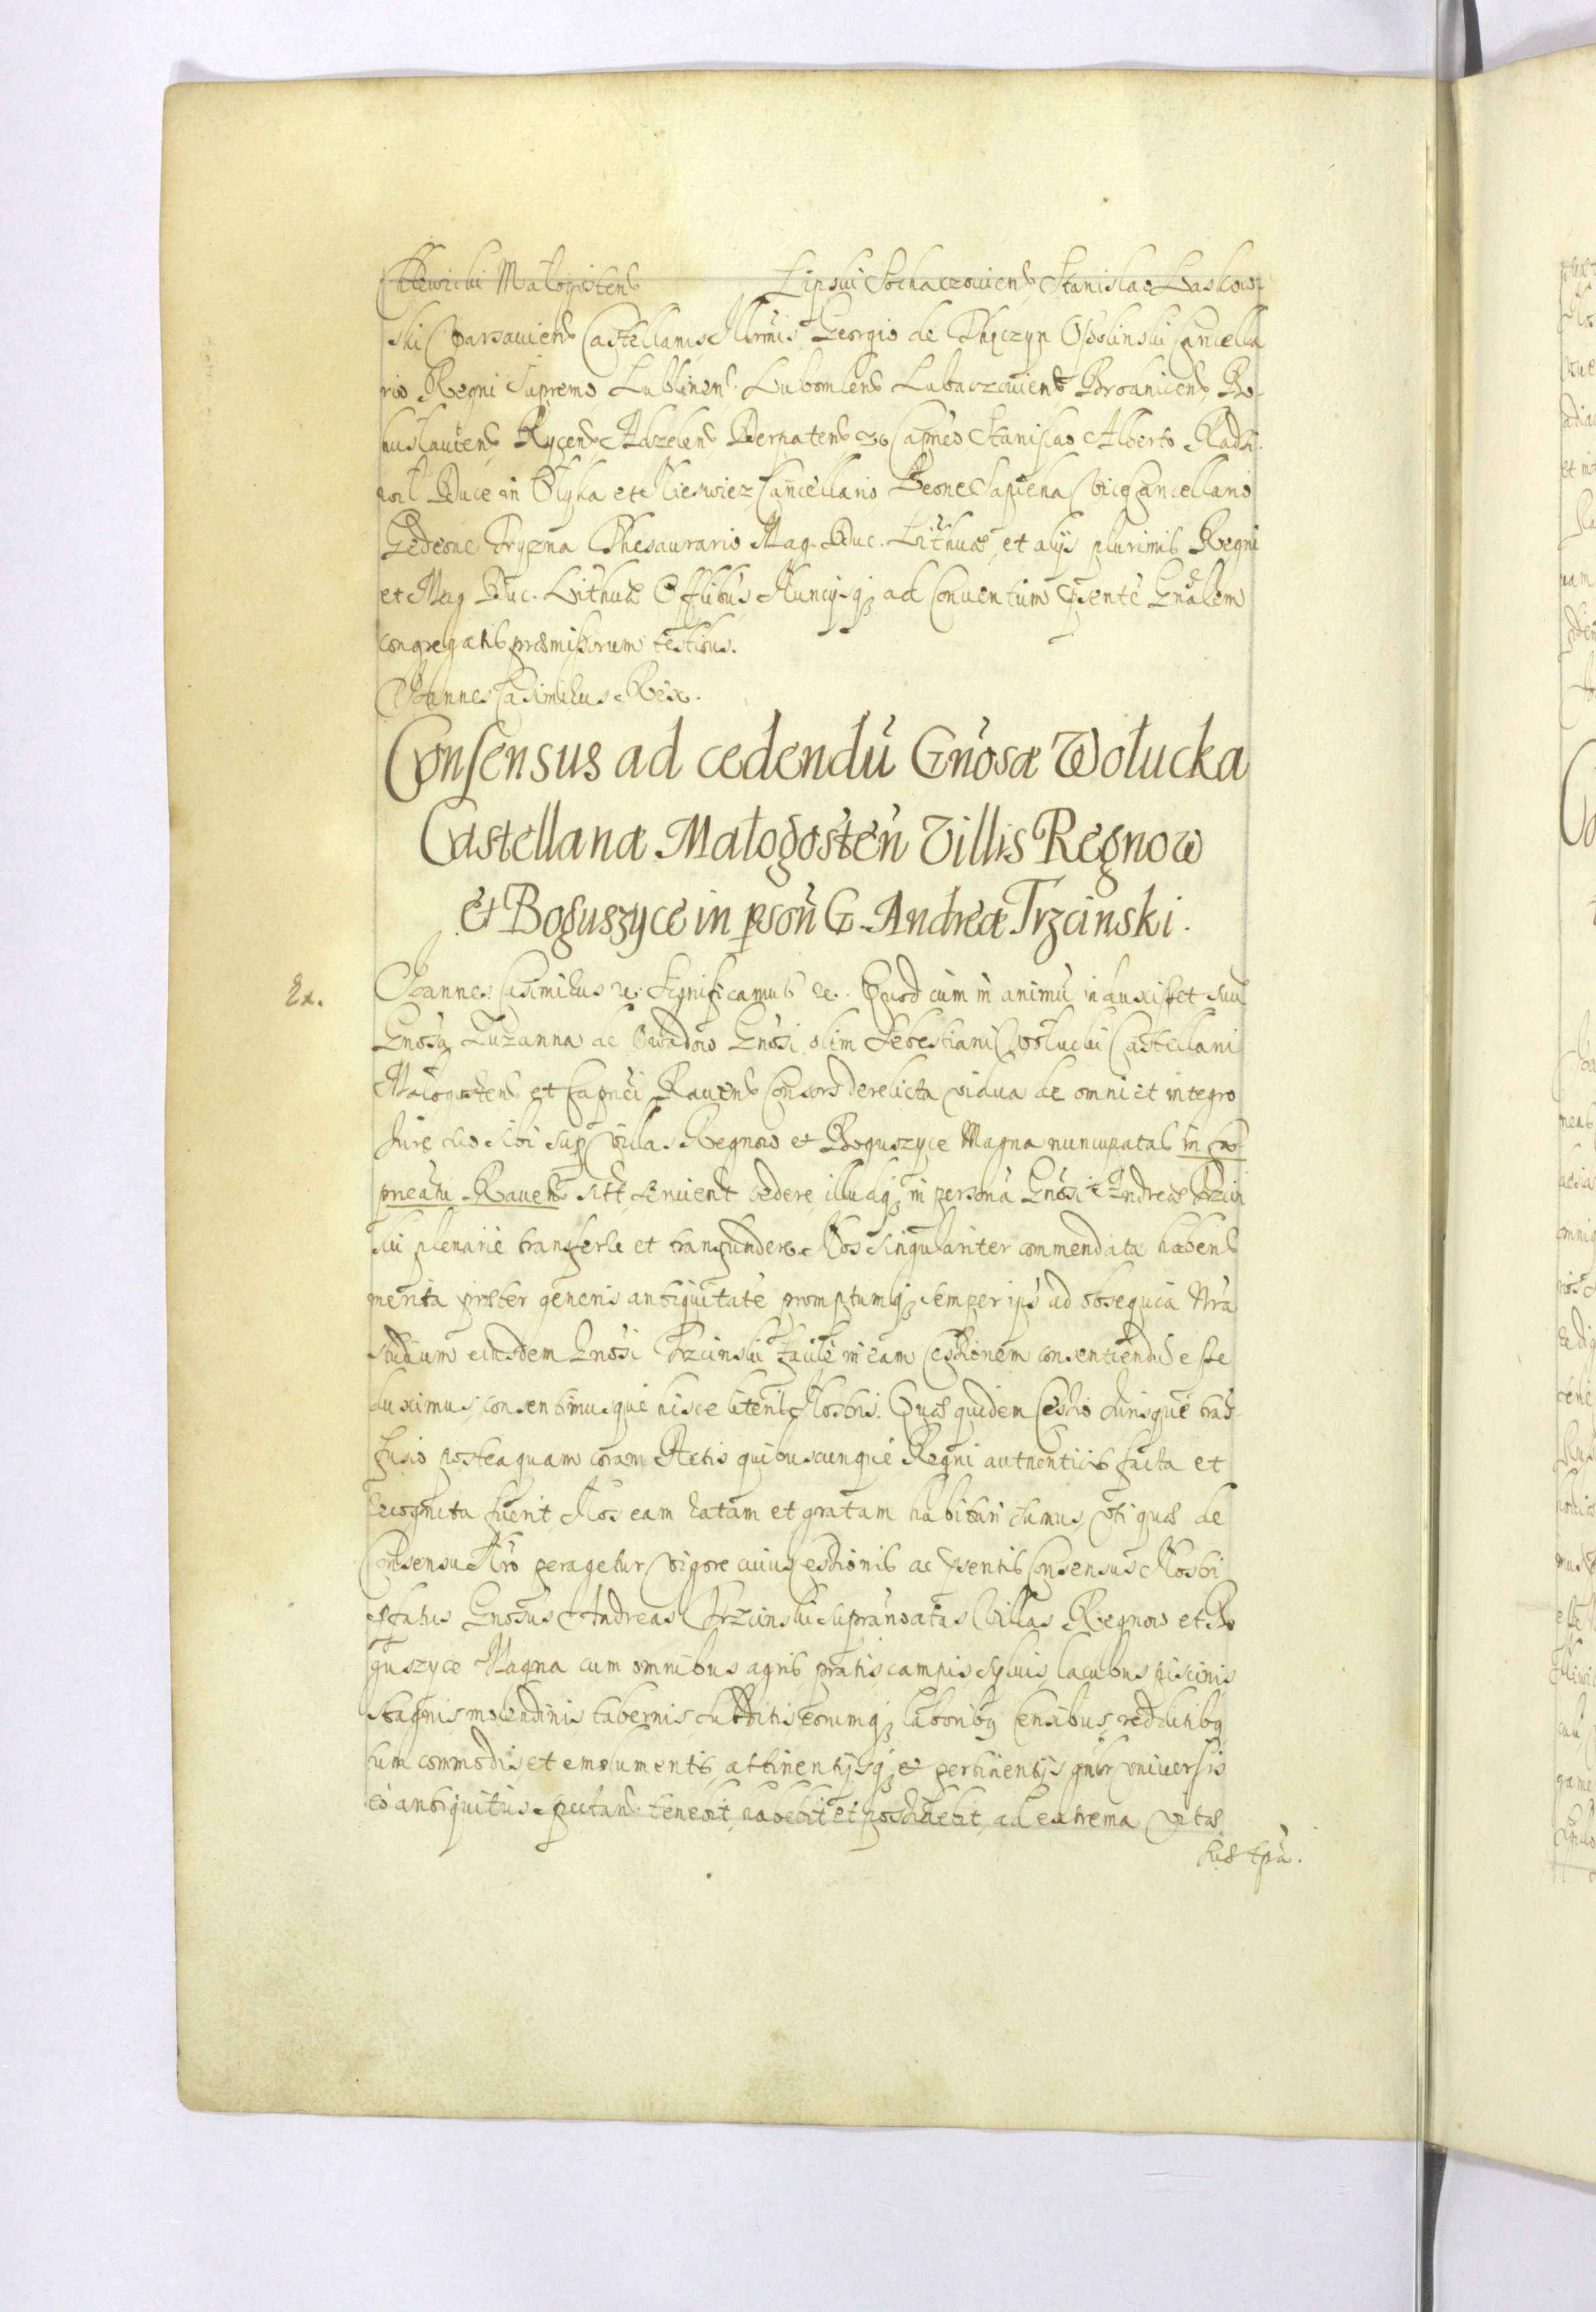 Malogosten Lipski Sochaczouien Stanislao Laskow
ski Varsauien Castellanis Illrmis Georgio de Thęczyn Ossolinski Cancella
rio Regni Supremo Lublinen Lubomlen Lubaczouien Brodnicen Bo
huslauien Rycen Adzelen Derpaten ⁊c Capneo Stanislao Alberto Radzi
uil Duce in Olyka et Nieswiez Cancellario Leone Sapieha Vicecancellario
Gedeone Tryzna Thesaurario Mag. Duc. Lithuæ, et alijs plurimis Regni
et Mag Duc. Lithuæ Offlibus Nuncijsq; ad Conuentum Pnte Gnalem
congregatis præmissorum testibus.
Joannes Casimirus Rex.
Consensus ad cedendũ Gnosæ Wołucka
Castellanæ Małogosteñ Villis Regnow
et Boguszyce in psoñ G. Andreæ Trzcinski.
Ex. Joannes Casimirus ⁊c. Significamus ⁊c. Quod cùm in animũ induxisset suũ
Gnosa Zuzanna de Gnosi olim Sebestiani Wolucki Castellani
Malogosten et Capnei Rauen Consors derelicta vidua de omni et integro
Jure suo sibi sup villas Regnow et Boguszyce Magna nuncupatas in Ca
pneatu Rauen sitt seruient cedere, illudq; in personã Gnosi Andreæ Trzcin
ski plenariè transferre et transfundere. Nos singulariter commendata habens
merita præter generis antiquitatẽ promptumq; semper ips ad obsequia Nra
studium eiusdem Gnosi Trzcinski facilè in eam Cessionem consentiendũ esse
duximus, consentimusque hisce literis Nostris. Quæ quidem Cessio Jurisque trans
fusio posteaquam coram Actis quibuscunque Regni autenticis facta et
recognita fuerit, Nos eam ratam et gratam habituri sumus, vti quæ de
Consensu Nro peragetur, vigore cuius Cessionis ac Pntis Consensus Nostri
pfatus Gnosus Andreas Trzcinski supranoatas Villas Regnow et Bo
guszyce Magna cum omnibus agris pratis campis syluis, lacubus piscinis
stagnis molendinis tabernis, subditis eorumq; laboribq censibus, redditibq
cum commodis et emolumentis, attinentijsq; et pertinentijs gnlr vniuersis
eò antiquitùs spectan tenebit, habebit et possidebit, ad extrema vitæ
suæ tpa.